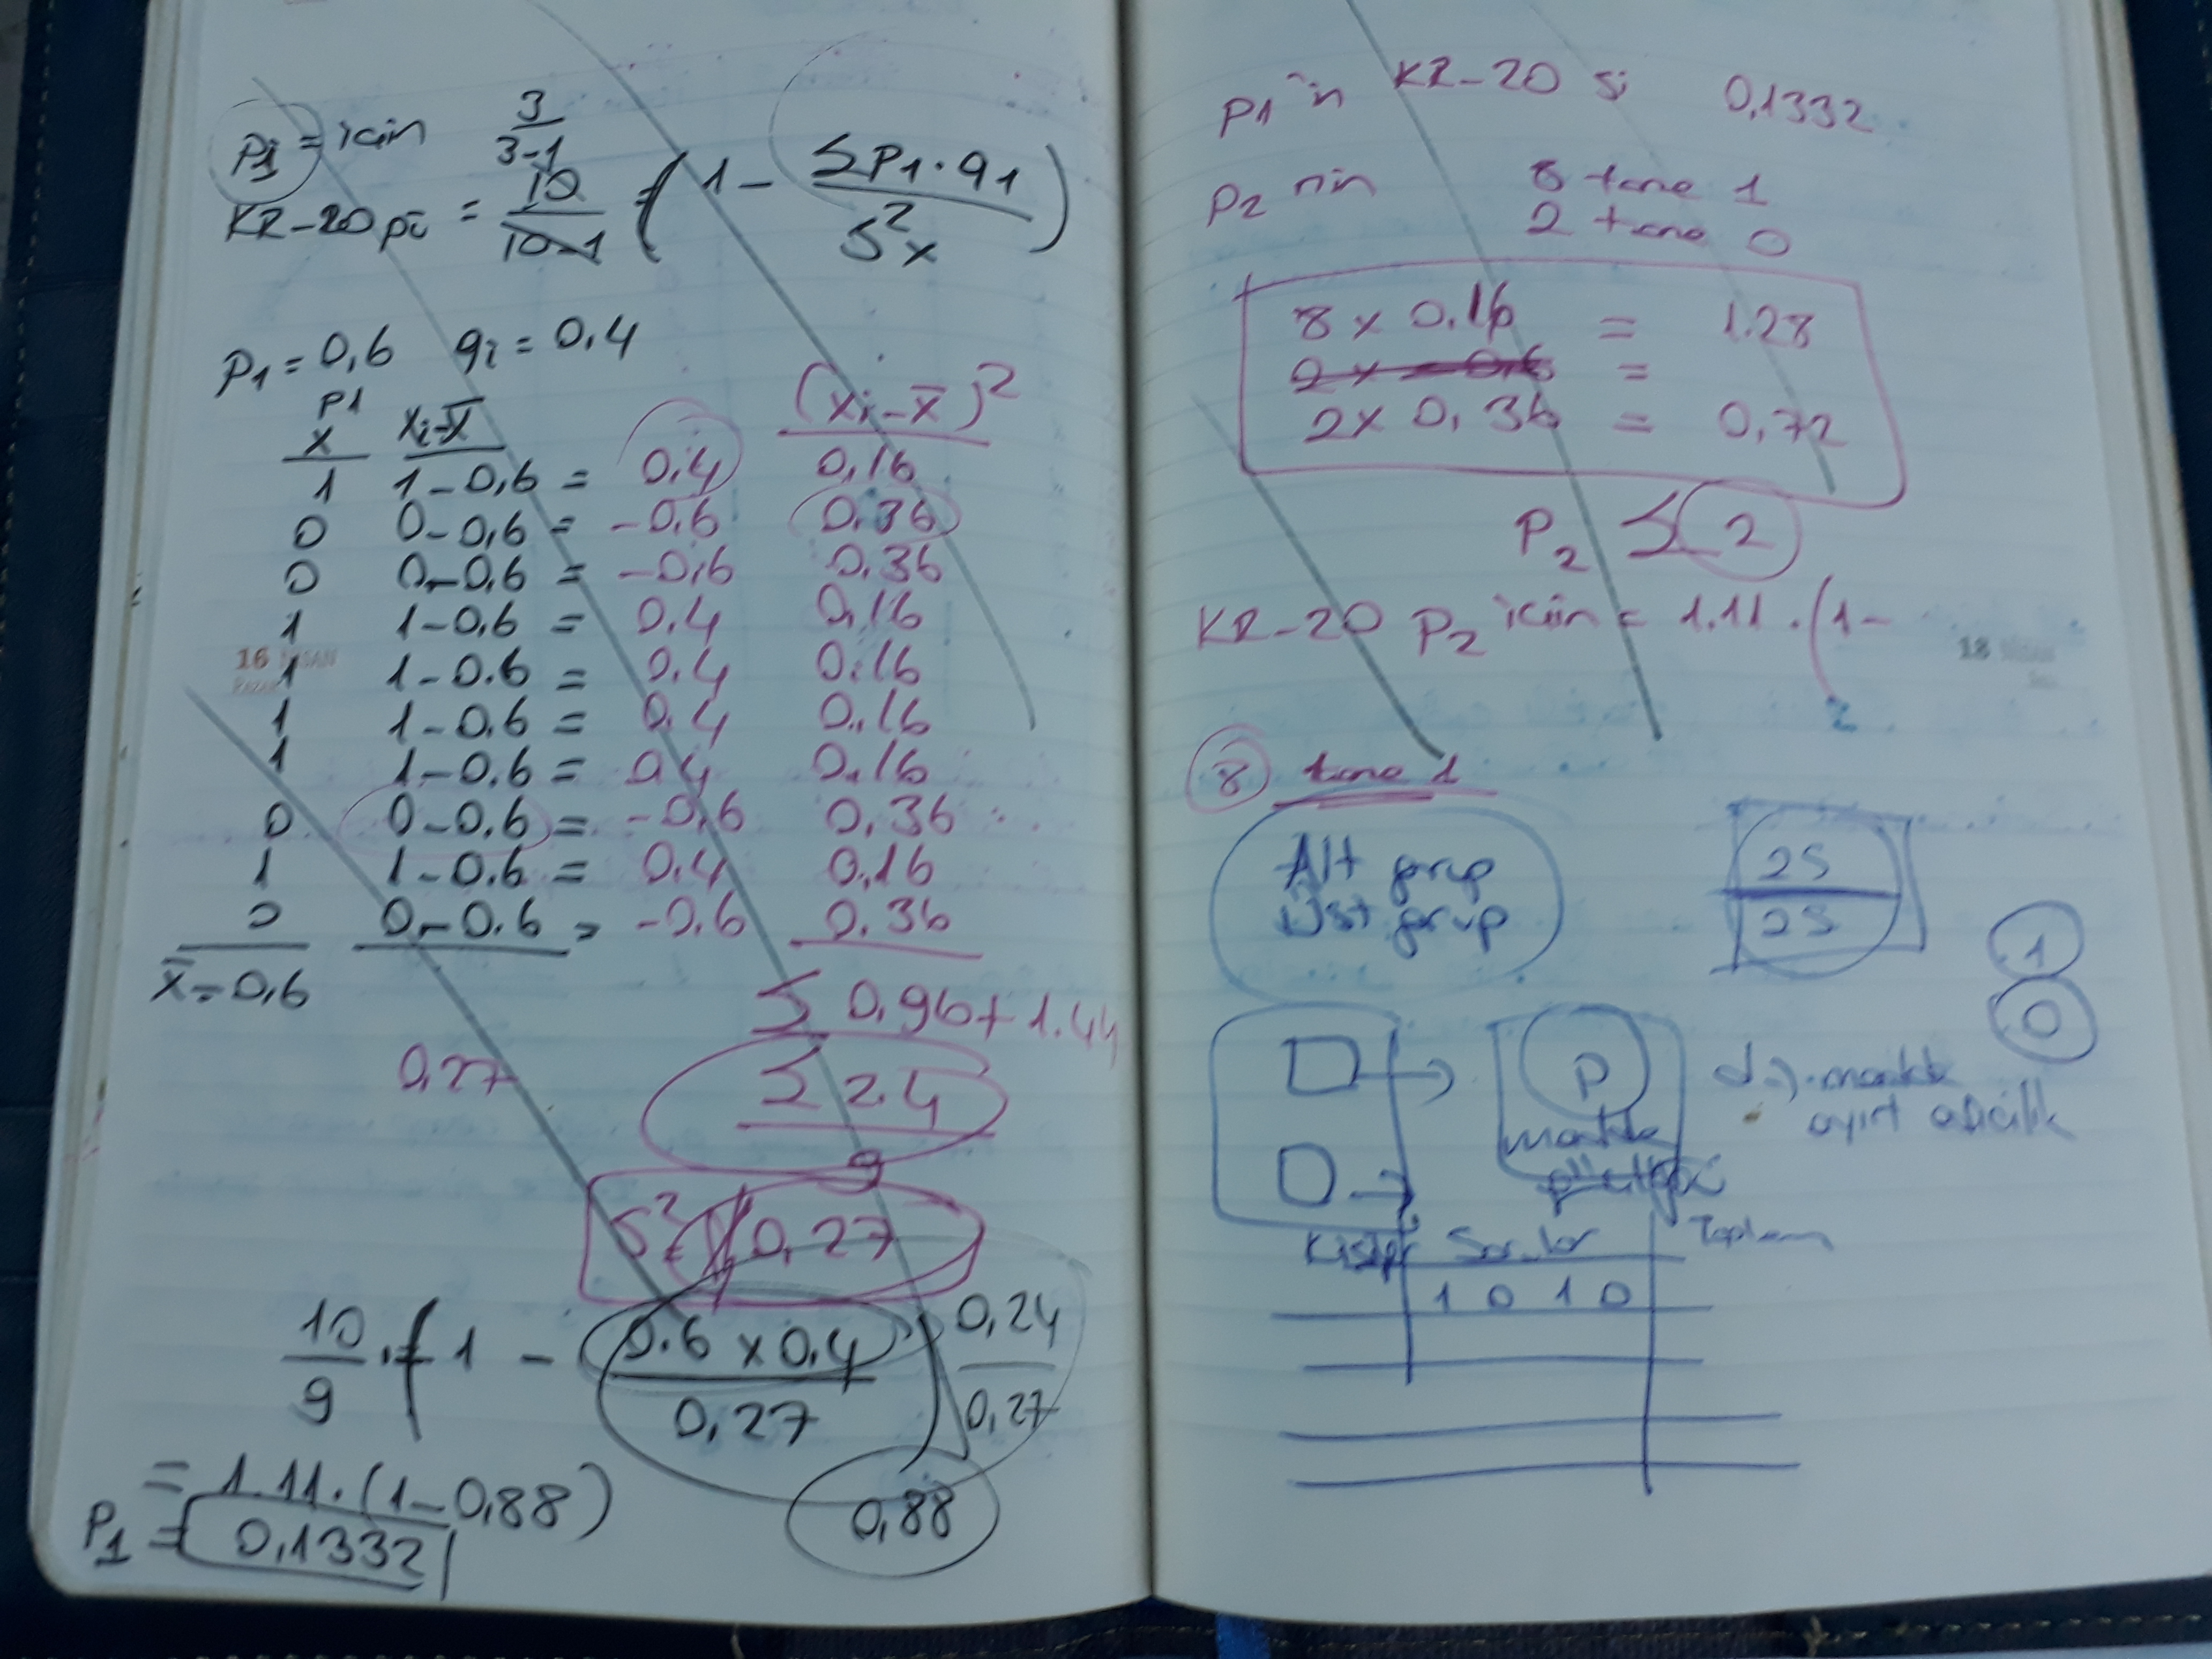 P1 = için 3/3-1
KR-20 pi = 10/10-1 (1 - Σp1.q1/S²x)
P1 = 0,6 qi = 0,4
P1
x xi-x̄ (xi-x̄)²
1 1-0,6 = 0,4 0,16
0 0-0,6 = -0,6 0,36
0 0-0,6 = -0,6 0,36
1 1-0,6 = 0,4 0,16
16 NİSAN
PAZAR
1 1-0.6 = 0,4 0,16
1 1-0.6 = 0,4 0,16
1 1-0.6 = 0,4 0,16
0 0-0.6 = -0,6 0,36
1 1-0.6 = 0,4 0,16
0 0-0.6 = -0,6 0,36
x̄=0,6
Σ 0,96+1.44
0,27
Σ 2.4
9
S² 0,27
10/9 . (1 - 0.6 x 0.4/0,27) 0,24/0,27
= 1.11.(1-0,88) 0,88
P1 = 0,1332
P1 in KR-20 si 0,1332
P2 nin 8 tane 1
2 tane 0
8 x 0,16 = 1.28
2 x -0,6 =
2 x 0,36 = 0,72
P2 Σ 2
KR-20 P2 için = 1.11.(1-
18 NİSAN
2
8 tane 1
Alt grup 25
Üst grup 25
1
0
P
madde
d =). madde
ayırt edicilik
Kişiler Sorular Toplam
1 0 1 0